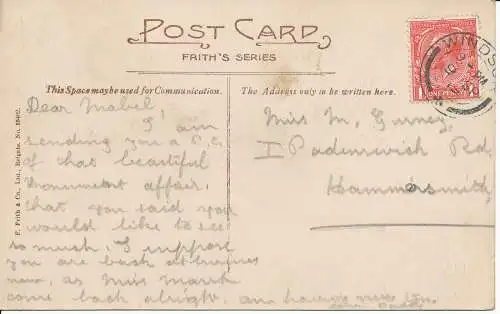 POST CARD
FRITH'S SERIES
This Space may be used for Communication.
The Address only to be written here.
F. Frith & Co., Ltd., Reigate. No.
WINDSO
ONE PENNY
Dear Mabel
I am
sending you a P.C.
of that beautiful
Monument affair,
that you said you
would like to see
so much. I suppose
you are back at business
now, as Miss March
come back alright. am having
Miss M. Gurney,
1 Padenswick Rd
Hammersmith